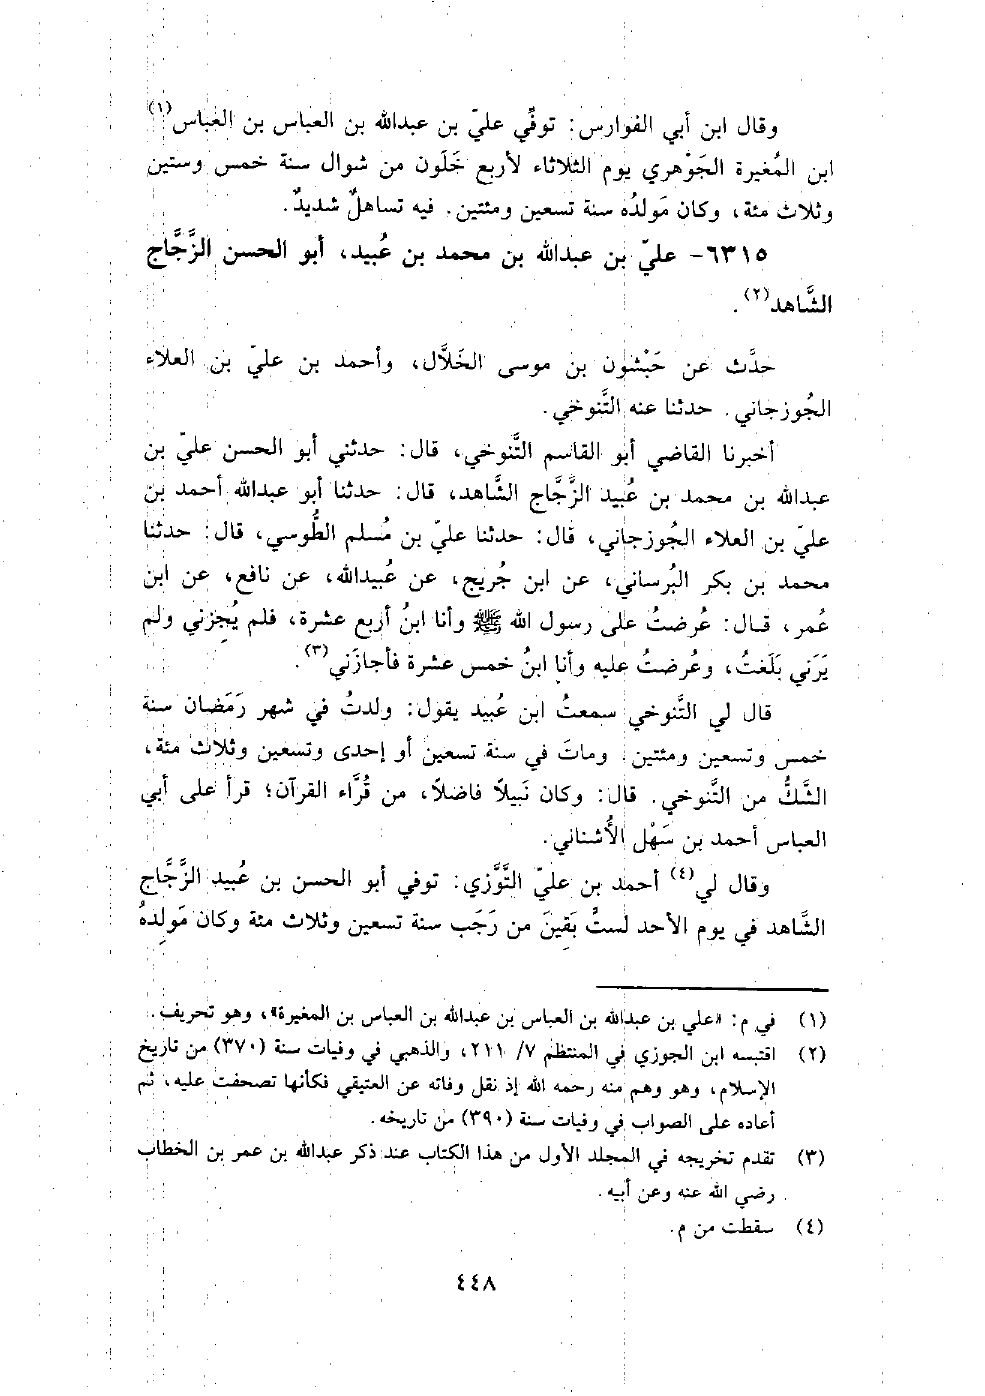 وقال ابن أبي الفوارس: توفِّي عليّ بن عبدالله بن العباس بن العباس(١)
ابن المُغيرة الجَوْهري يوم الثلاثاء لأربع خَلَون من شوال سنة خمس وستين
وثلاث مئة، وكان مَولدُه سنة تسعين ومئتين. فيه تساهلٌ شديدٌ.
٦٣١٥- عليّ بن عبدالله بن محمد بن عُبيد، أبو الحسن الزَّجَّاج
الشَّاهد(٢).
حدَّث عن حَبْشون بن موسى الخَلَّال، وأحمد بن عليّ بن العلاء
الجُوزجاني. حدثنا عنه التَّنوخي.
أخبرنا القاضي أبو القاسم التَّنوخي، قال: حدثني أبو الحسن عليّ بن
عبدالله بن محمد بن عُبيد الزَّجَّاج الشَّاهد، قال: حدثنا أبو عبدالله أحمد بن
عليّ بن العلاء الجُوزجاني، قال: حدثنا عليّ بن مُسلم الطُّوسي، قال: حدثنا
محمد بن بكر البُرساني، عن ابن جُريج، عن عُبيدالله، عن نافع، عن ابن
عُمر، قال: عُرضتُ على رسول الله ﷺ وأنا ابنُ أربع عشرة، فلم يُجِزني ولم
يَرَني بَلَغتُ، وعُرضتُ عليه وأنا ابنُ خمس عشرة فأجازَني(٣).
قال لي التَّنوخي سمعتُ ابن عُبيد يقول: ولدتُ في شهر رَمَضان سنة
خمس وتسعين ومئتين. وماتَ في سنة تسعين أو إحدى وتسعين وثلاث مئة،
الشَّكُّ من التَّنوخي. قال: وكان نَبيلاً فاضلاً، من قُرَّاء القرآن؛ قرأ على أبي
العباس أحمد بن سَهْل الأُشناني.
وقال لي(٤) أحمد بن عليّ التَّوَّزي: توفي أبو الحسن بن عُبيد الزَّجَّاج
الشَّاهد في يوم الأحد لستٍّ بَقِينَ من رَجَب سنة تسعين وثلاث مئة وكان مَولِدهُ
(١) في م: «علي بن عبدالله بن العباس بن عبدالله بن العباس بن المغيرة»، وهو تحريف.
(٢) اقتبسه ابن الجوزي في المنتظم ٧/ ٢١١، والذهبي في وفيات سنة (٣٧٠) من تاريخ
الإسلام، وهو وهم منه رحمه الله إذ نقل وفاته عن العتيقي فكأنها تصحفت عليه، ثم
أعاده على الصواب في وفيات سنة (٣٩٠) من تاريخه.
(٣) تقدم تخريجه في المجلد الأول من هذا الكتاب عند ذكر عبدالله بن عمر بن الخطاب
رضي الله عنه وعن أبيه.
(٤) سقطت من م.
٤٤٨